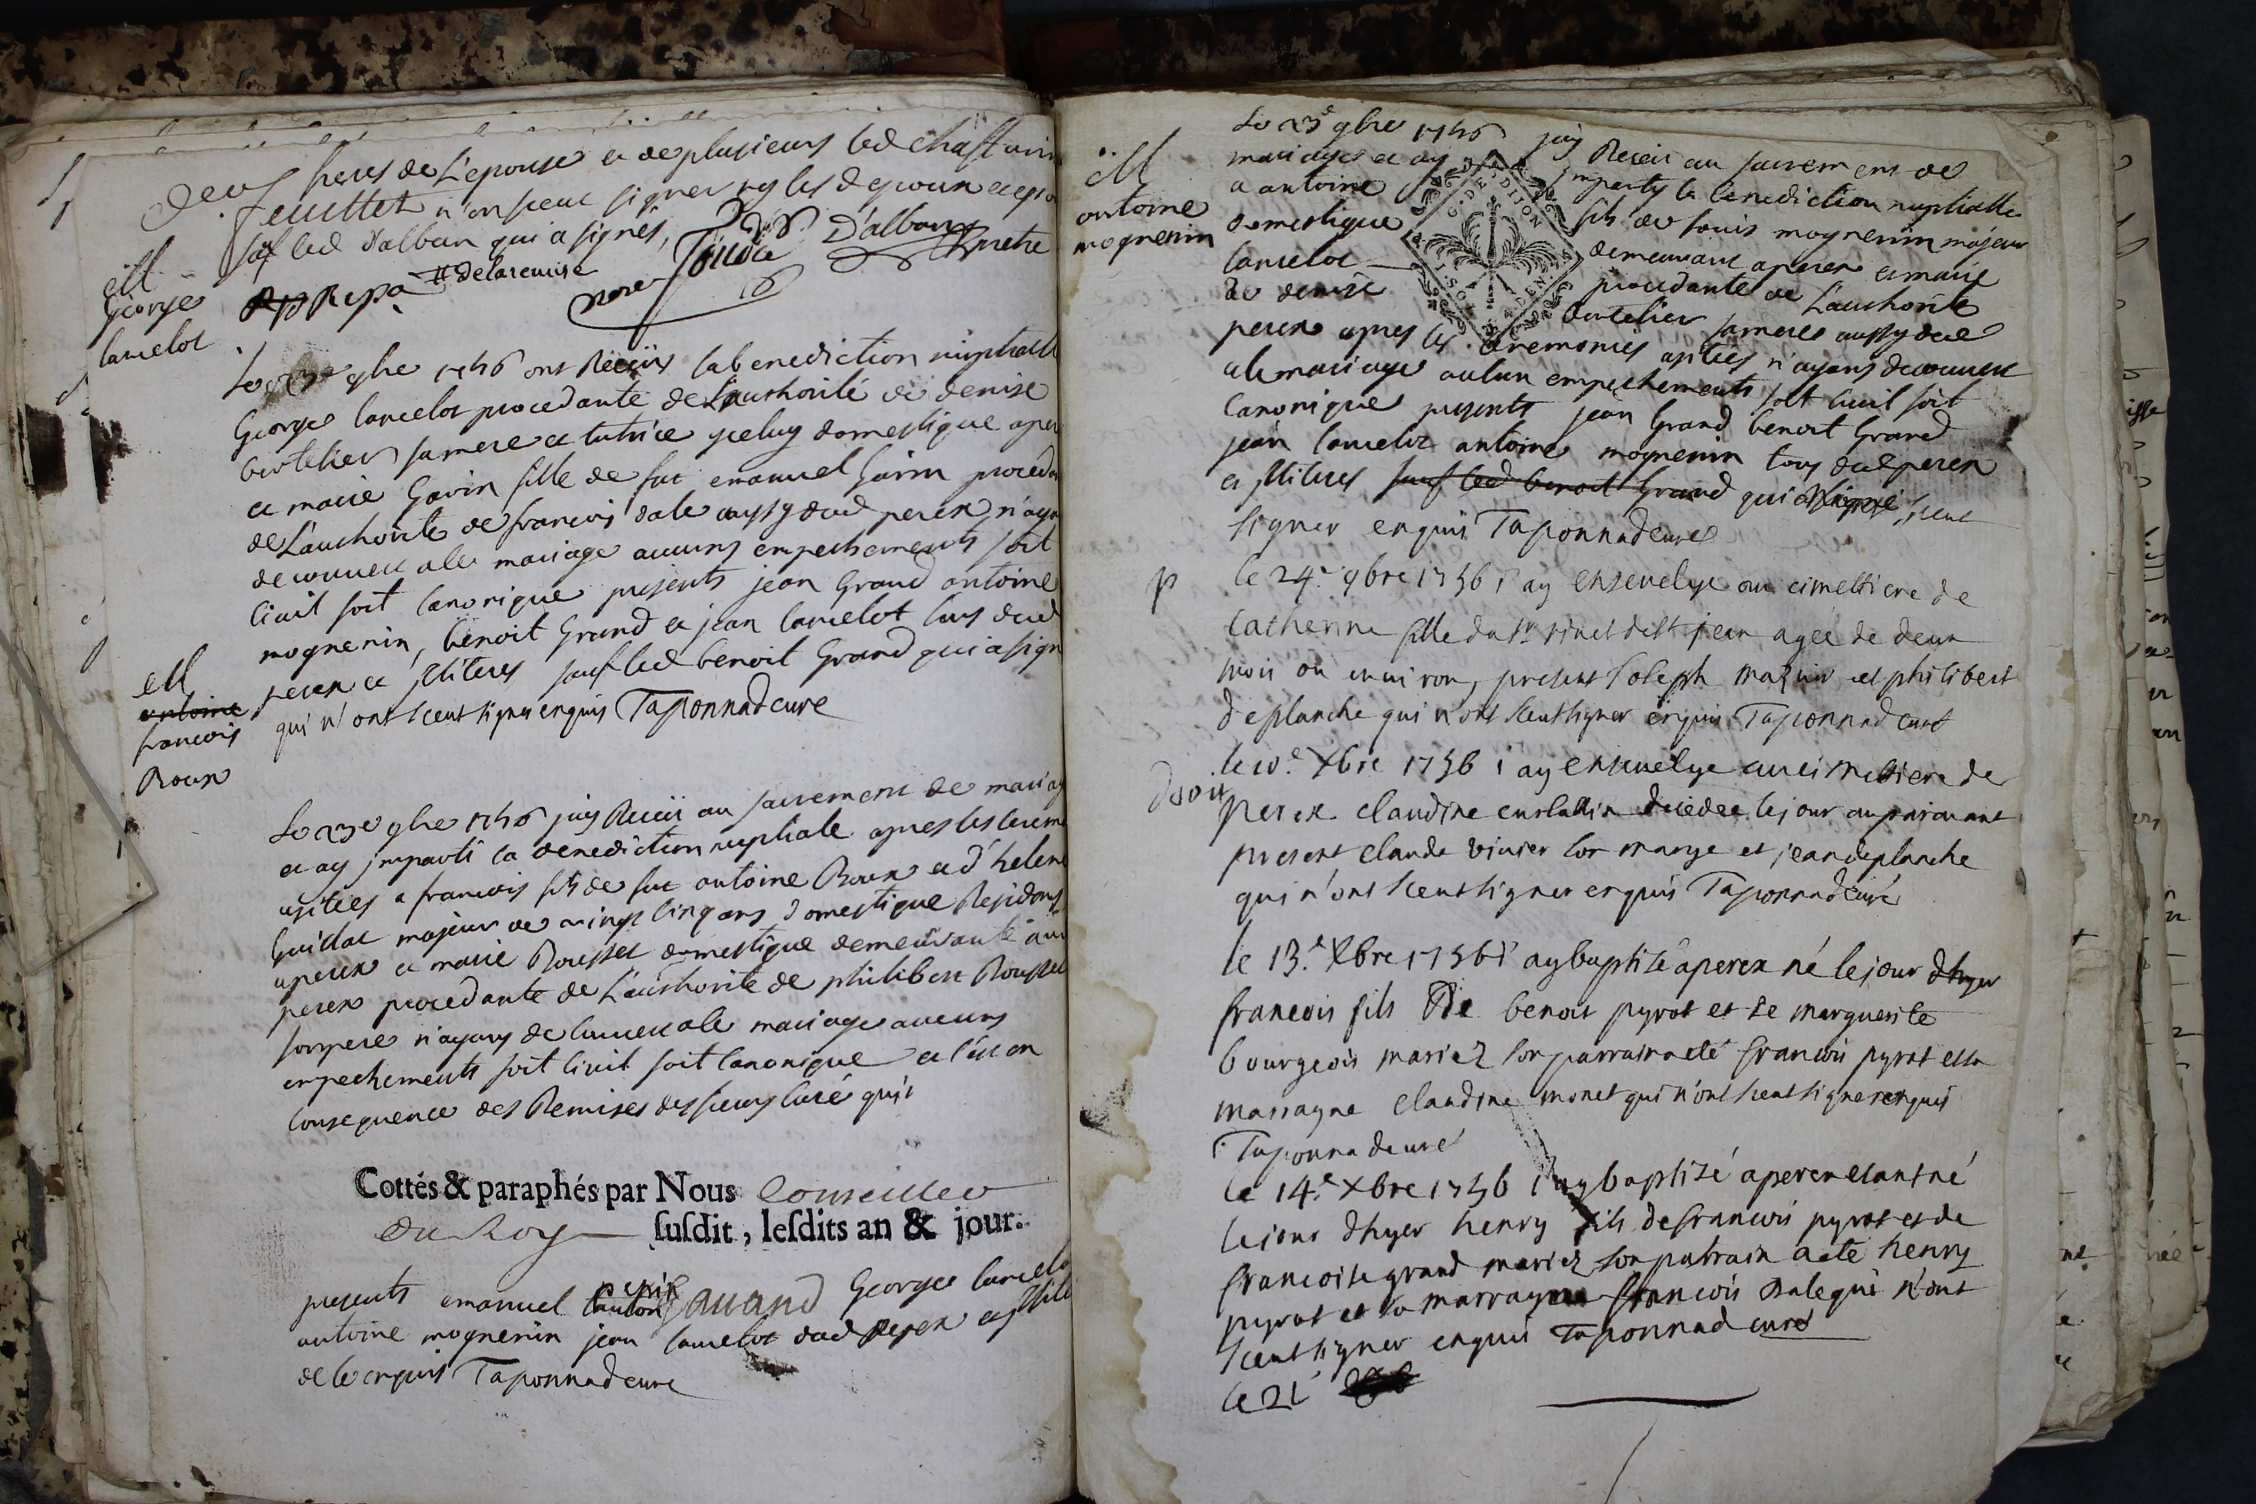 freres de L'epouse et de plusieurs led
feuillet n'on sceut signer ny les d epoux
sauf led d'alban qui a signés,
D'alban
delaremise
M
George
lancelot
Le 23e 9bre 1756 ont Recüs la benediction nuptialle
George lancelot procedante de L'authorité de denise
bertelier sa mere et tutrice yceluy domestique aper
et marie Gavin fille de fut emanuel Gavin proced
de L'authorité de francois dale aussy dud perex n'aya
decouvert alr mariage aucuns empechements soit
Civil soit Canonique presents jean Grand antoine
mognenin, benoit Grand et jean lancelot tous dud
perex et jlliteres sauf led benoit Grand qui a sign
qui n'ont sceut signer enquis Taponnad curé
M
antoine
francois
Roux
Le 23e 9bre 1756 jay Recüs au sacrement de mariag
et ay jmparti la benediction nuptiale apres les ceremo
usitées a francois fils de fut antoine Roux et d'helene
Guillot majeur de vingt cinq ans domestique Residant
aperex et marie Rousset domestique demeurante au
perex procedante de L'authorité de philibert Rousset
son pere n'ayans decouvert alr mariage aucuns
empechements soit Civil soit Canonique et c'est en
Consequence des Remises des sieurs Curé qu'i
Cottés & paraphés par Nous Conseiller
du Roy susdit, lesdits an & jour.
presents emanuel Gavand George lancelo
antoine mognenin jean lancelot dud perex et jllite
de ce enquis Taponnad curé
M
antoine
mognenin
Le 23e 9bre 1756 jay Recüs au sacrement de
mariages et ay jmparty la benediction nuptialle
a antoine fils de louis mognenin majeur
domestique demeurant aperex et marie
lancelot procedante de L'authorité
de denise bertelier sa mere aussy dud
perex apres les ceremonies usitées n'ayans decouvert
alr mariage aucun empechements soit Civil soit
Canonique presents jean Grand benoit Grand
jean lancelot antoine mognenin tous dud perex
et jlliteres sauf led benoit Grand qui sceut
signer enquis Taponnad curé
G. DE DIJON
p
le 24.e 9bre 1756 i'ay ensevelye au cimettiere de
Catherine fille du jean agée de deux
mois ou environ, present Joseph Mazuir et philibert
deplanche qui n'ont sceut signer enquis Taponnad curé
le 10.e Xbre 1756 i'ay ensevelye au cimettiere de
perex Claudine decedée le jour auparavant
present Claude Vivier son marye et jean deplanche
qui n'ont sceut signer enquis Taponnad curé
le 13.e Xbre 1756 i'ay baptisé aperex né le jour d'hyer
francois fils de benoit pyrot et de marguerite
bourgeois mariez son parrain a eté francois pyrot et sa
marrayne Claudine monet qui n'ont sceut signer enquis
Taponnad curé
le 14.e Xbre 1756 i'ay baptizé aperex etant né
le jour d'hyer henry fils de francois pyrot et de
francoise grand mariez son parrain a eté henry
pyrot et sa marrayne francois Dale qui n'ont
sceut signer enquis Taponnad curé
le 21